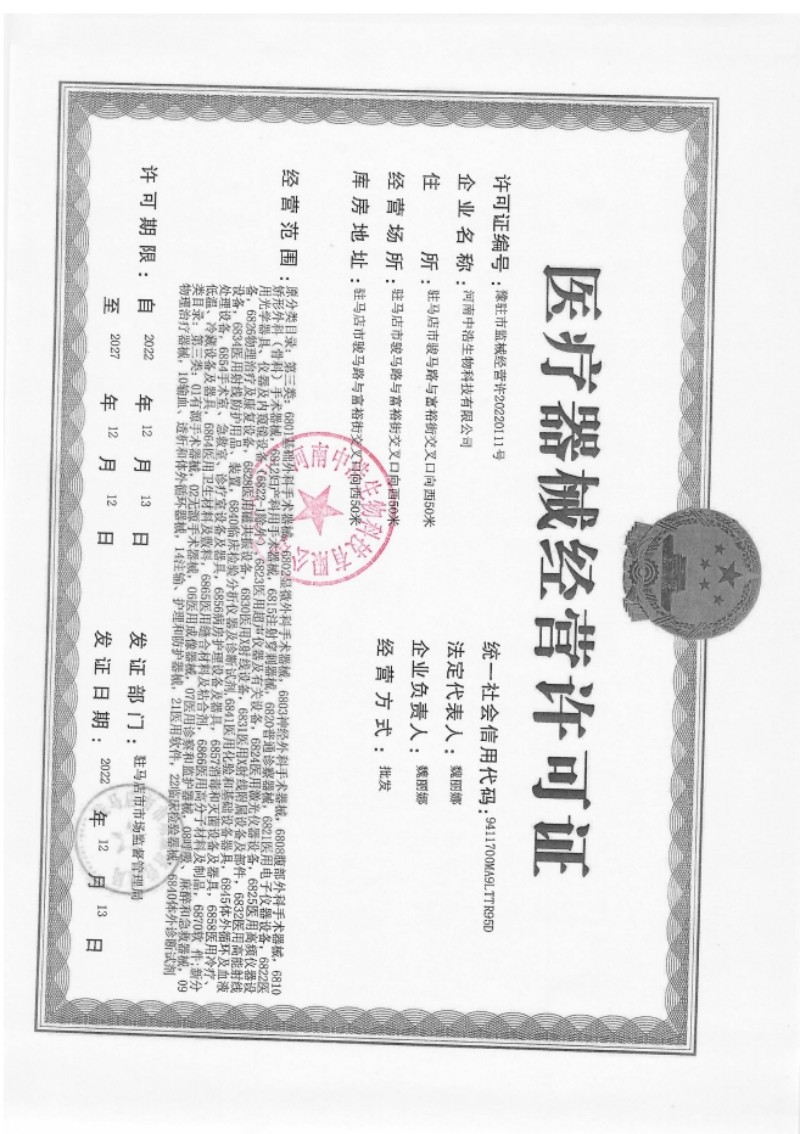 医疗器械经营许可证
许可证编号：豫驻市监械经营许20220111号
统一社会信用代码：9411700MA9LTTR95D
企业名称：河南中浩生物科技有限公司
法定代表人：魏丽娜
住所：驻马店市骏马路与富裕街交叉口向西50米
企业负责人：魏丽娜
经营场所：驻马店市骏马路与富裕街交叉口向西50米
经营方式：批发
库房地址：驻马店市骏马路与富裕街交叉口向西50米
经营范围：原分类目录：第三类：6801基础外科手术器械，6802显微外科手术器械，6803神经外科手术器械，6808腹部外科手术器械，6810
矫形外科（骨科）手术器械，6812妇产科用手术器械，6815注射穿刺器械，6820普通诊察器械，6821医用电子仪器设备，6822医
用光学器具、仪器及内窥镜设备（6822-1除外），6823医用超声仪器及有关设备，6824医用激光仪器设备，6825医用高频仪器设
备，6826物理治疗及康复设备，6828医用磁共振设备，6830医用X射线设备，6831医用X射线附属设备及部件，6832医用高能射线
设备，6834医用射线防护用品、装置，6840临床检验分析仪器及诊断试剂，6841医用化验和基础设备器具，6845体外循环及血液
处理设备，6854手术室、急救室、诊疗室设备及器具，6856病房护理设备及器具，6857消毒和灭菌设备及器具，6858医用冷疗、
低温、冷藏设备及器具，6864医用卫生材料及敷料，6865医用缝合材料及粘合剂，6866医用高分子材料及制品，6870软件;新分
类目录：第三类：01有源手术器械，02无源手术器械，06医用成像器械，07医用诊察和监护器械，08呼吸、麻醉和急救器械，09
物理治疗器械，10输血、透析和体外循环器械，14注输、护理和防护器械，21医用软件，22临床检验器械，6840体外诊断试剂
许可期限：自 2022 年 12 月 13 日
发证部门：驻马店市市场监督管理局
至 2027 年 12 月 12 日
发证日期：2022 年 12 月 13 日
河南中浩生物科技有限公司